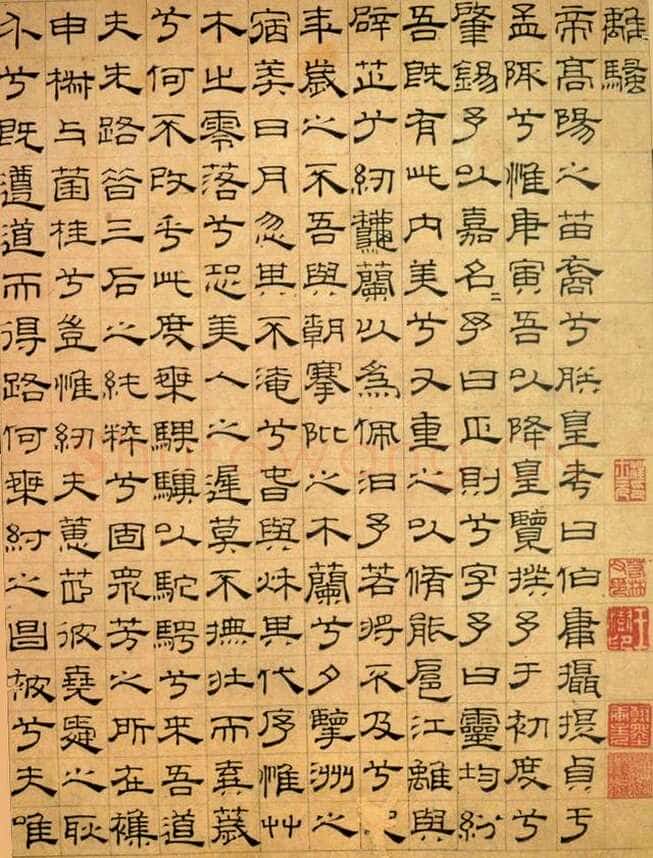 離騷
帝高陽之苗裔兮朕皇考曰伯庸攝提貞于
孟陬兮惟庚寅吾以降皇覽揆予于初度兮
肇錫予以嘉名〻予曰正則兮字予曰靈均紛
吾既有此內美兮又重之以脩能扈江離與
辟芷兮紉龝蘭以為佩汩予若將不及兮恐
年歲之不吾與朝搴阰之木蘭兮夕擥洲之
宿莽日月忽其不淹兮春與秋其代序惟艸
木之零落兮恐美人之遲莫不撫壯而棄薉
兮何不改乎此度椉騏驥以駝騁兮來吾道
夫先路昔三后之純粹兮固眾芳之所在襍
申椒与菌桂兮豈惟紉夫蕙茝彼堯舜之耿
介兮既遵道而得路何桀紂之昌被兮夫唯
王澍印